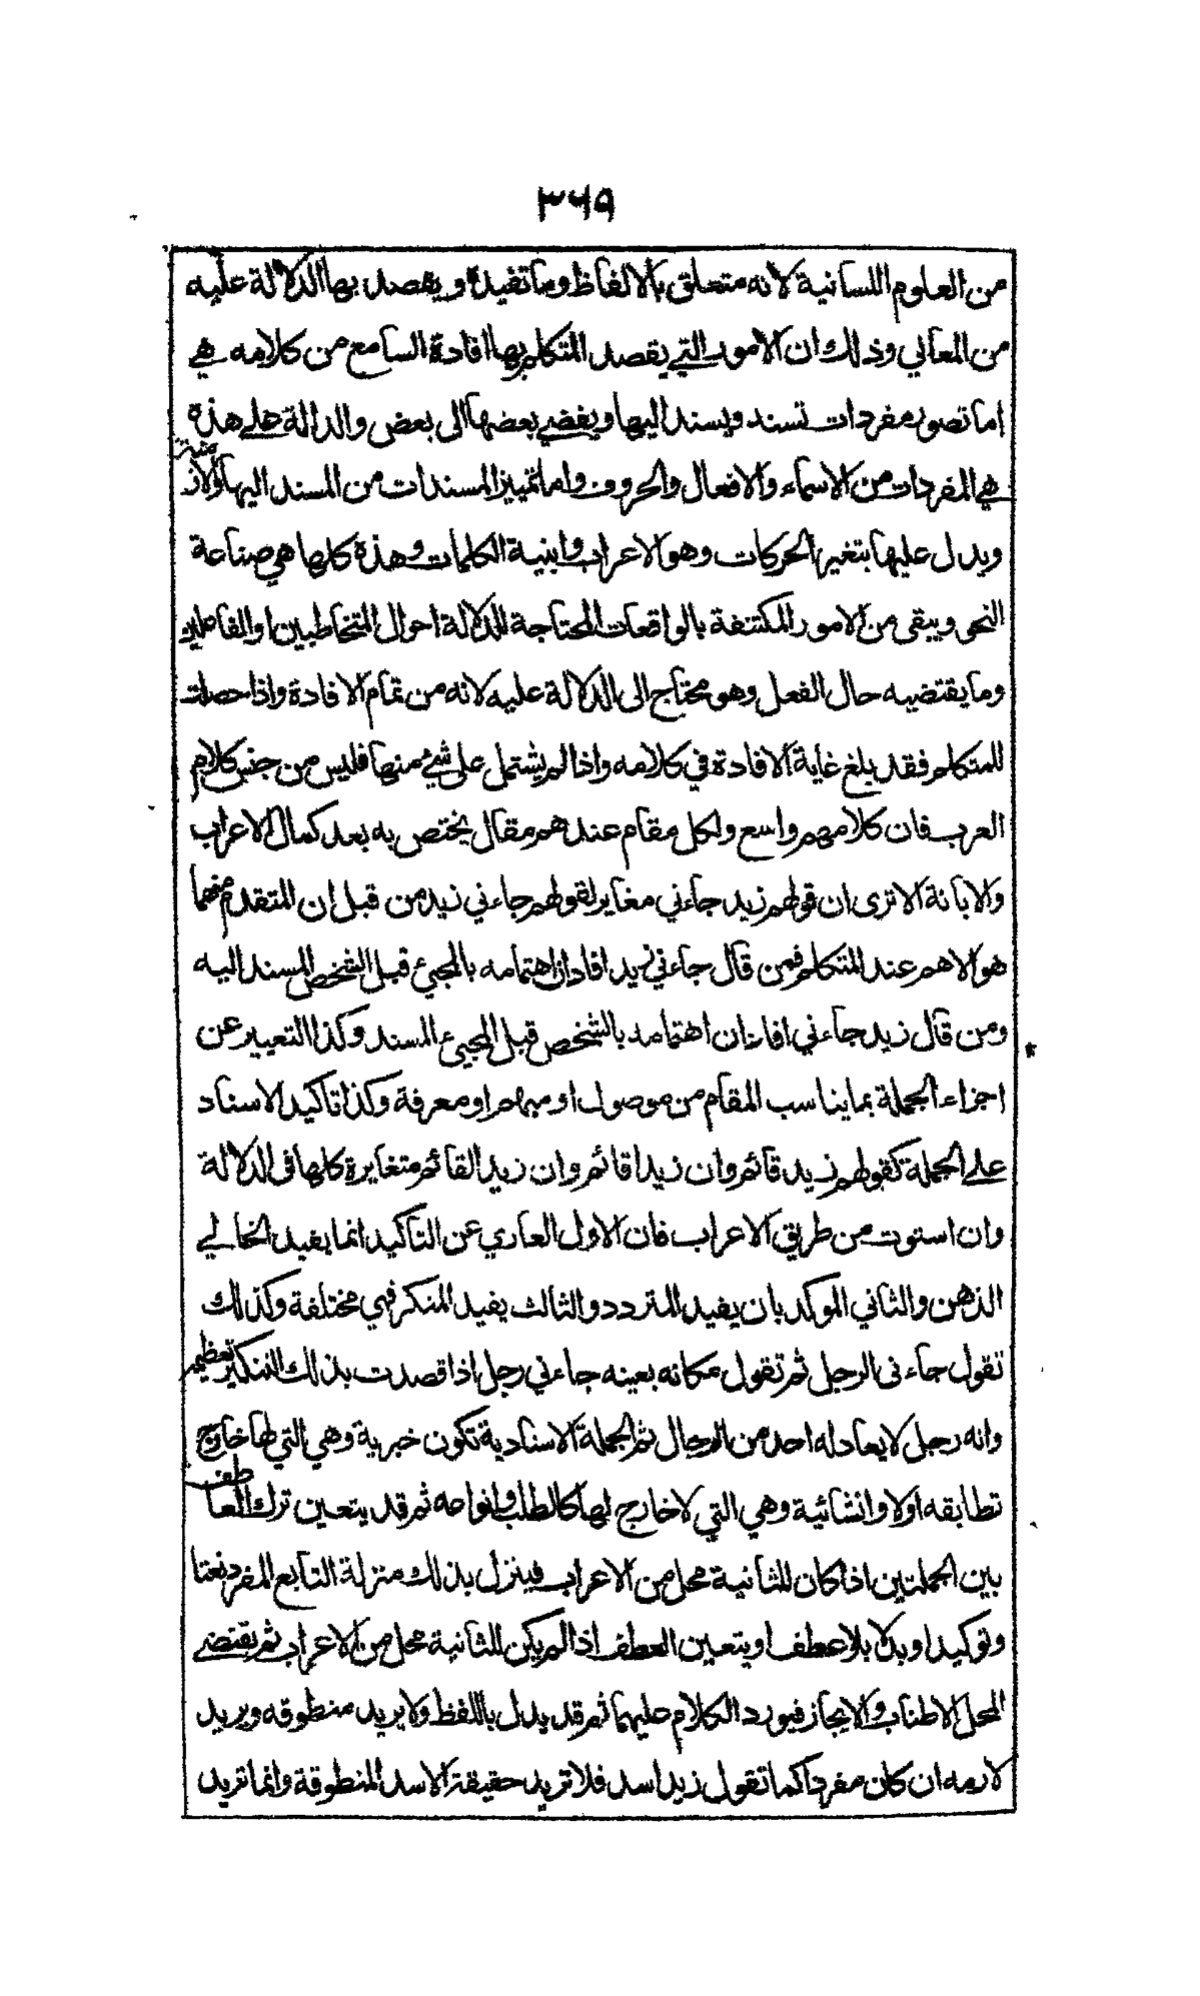 ٣٦٩
من العلوم اللسانية لانه متعلق بالالفاظ وما تفيده ويقصد بها الدلالة عليه
من المعاني وذلك ان الامور التي يقصد المتكلم بها افادة السامع من كلامه هي
اما تصور مفردات تسند ويسند اليها ويفضي بعضها الى بعض والدالة على هذه
هي المفردات من الاسماء والافعال والحروف واما تمييز المسندات من المسند اليها والازمنة
ويدل عليها بتغير الحركات وهو الاعراب وابنية الكلمات وهذه كلها هي صناعة
النحو ويبقى من الامور المكتنفة بالواقعات المحتاجة للدلالة احوال المتخاطبين او الفاعلين
وما يقتضيه حال الفعل وهو محتاج الى الدلالة عليه لانه من تمام الافادة واذا حصلت
للمتكلم فقد بلغ غاية الافادة في كلامه واذا لم يشتمل على شئ منها فليس من جنس كلام
العرب فان كلامهم واسع ولكل مقام عندهم مقال يختص به بعد كمال الاعراب
والابانة الا ترى ان قولهم زيد جاءني مغاير لقولهم جاءني زيد من قبل ان المتقدم منهما
هو الاهم عند المتكلم فمن قال جاءني زيد افاد ان اهتمامه بالمجيئ قبل الشخص المسند اليه
ومن قال زيد جاءني افاد ان اهتمامه بالشخص قبل المجيئ المسند وكذا التعبير عن
اجزاء الجملة بما يناسب المقام من موصول او مبهم او معرفة وكذا تاكيد الاسناد
على الجملة كقولهم زيد قائم وان زيدا قائم وان زيد القائم متغايرة كلها في الدلالة
وان استوت من طريق الاعراب فان الاول العاري عن التاكيد انما يفيد الخالي
الذهن والثاني الموكد بان يفيد المتردد والثالث يفيد المنكر فهي مختلفة وكذلك
تقول جاءنى الرجل ثم تقول مكانه بعينه جاءني رجل اذا قصدت بذلك التنكير تعظيم
وانه رجل لا يعادله احد من الرجال ثم الجملة الاسنادية تكون خبرية وهي التي لها خارج
تطابقه اولا وانشائية وهي التي لا خارج لها كالطلب وانواعه ثم قد يتعين ترك العاطف
بين الجملتين اذا كان للثانية محل من الاعراب فينزل بذلك منزلة التابع المفرد نعتا
وتوكيدا وبدلا بلا عطف او يتعين العطف اذا لم يكن للثانية محل من الاعراب ثم يقتضي
المحل الاطناب والايجاز فيورد الكلام عليهما ثم قد يدل باللفظ ولا يريد منطوقه ويريد
لازمه ان كان مفردا كما تقول زيد اسد فلا تريد حقيقة الاسد المنطوقة وانما تريد